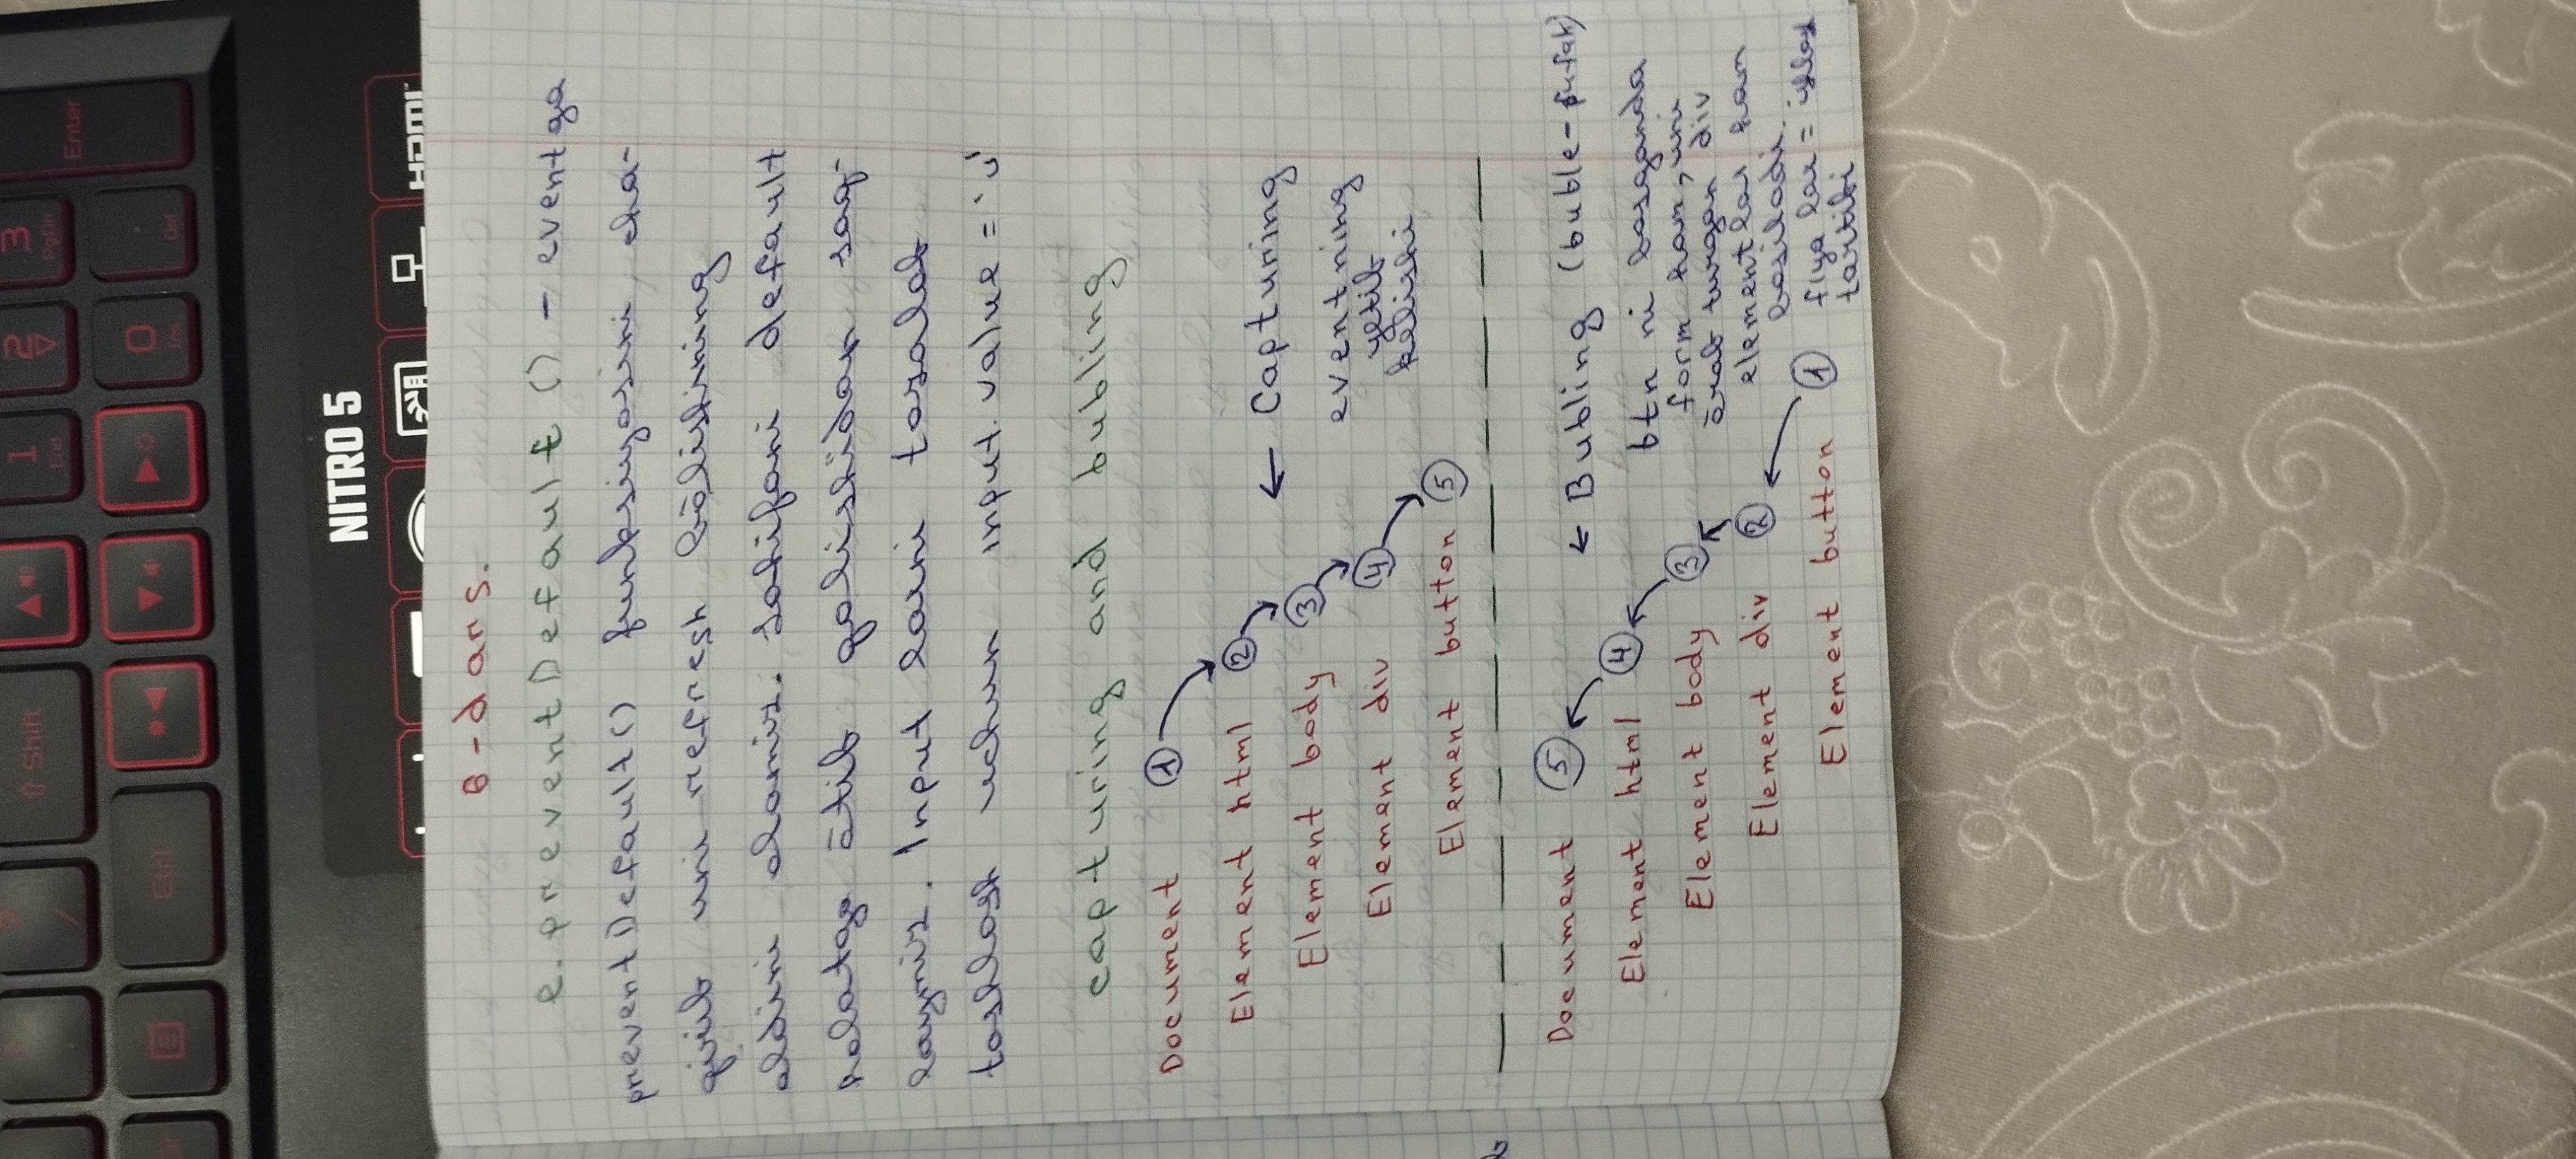 8-dars.
e.preventDefault() - eventga
preventDefault() funksiyasini cha-
qirib uni refresh bōlishining
oldini olamiz. Sahifani default
holatga ōtib qolishidan saq-
laymiz. Input larni tozalab
tashlash uchun input.value = ' '
capturing and bubling
Document 1
Element html 2
Element body 3
Element div 4
Element button 5
← Capturing
eventning
yetib
kelishi
Document 5
Element html 4
Element body 3
Element div 2
Element button 1
← Bubling (buble-pufak)
btn ni bosganda
form ham, uni
ōrab turgan div
elementlar ham
bosiladi.
flya lar = ishlash
tartibi
NITRO 5
HDMI
Enter
3
PgDn
.
Del
2
0
Ins
1
End
Shift
Ctrl
/